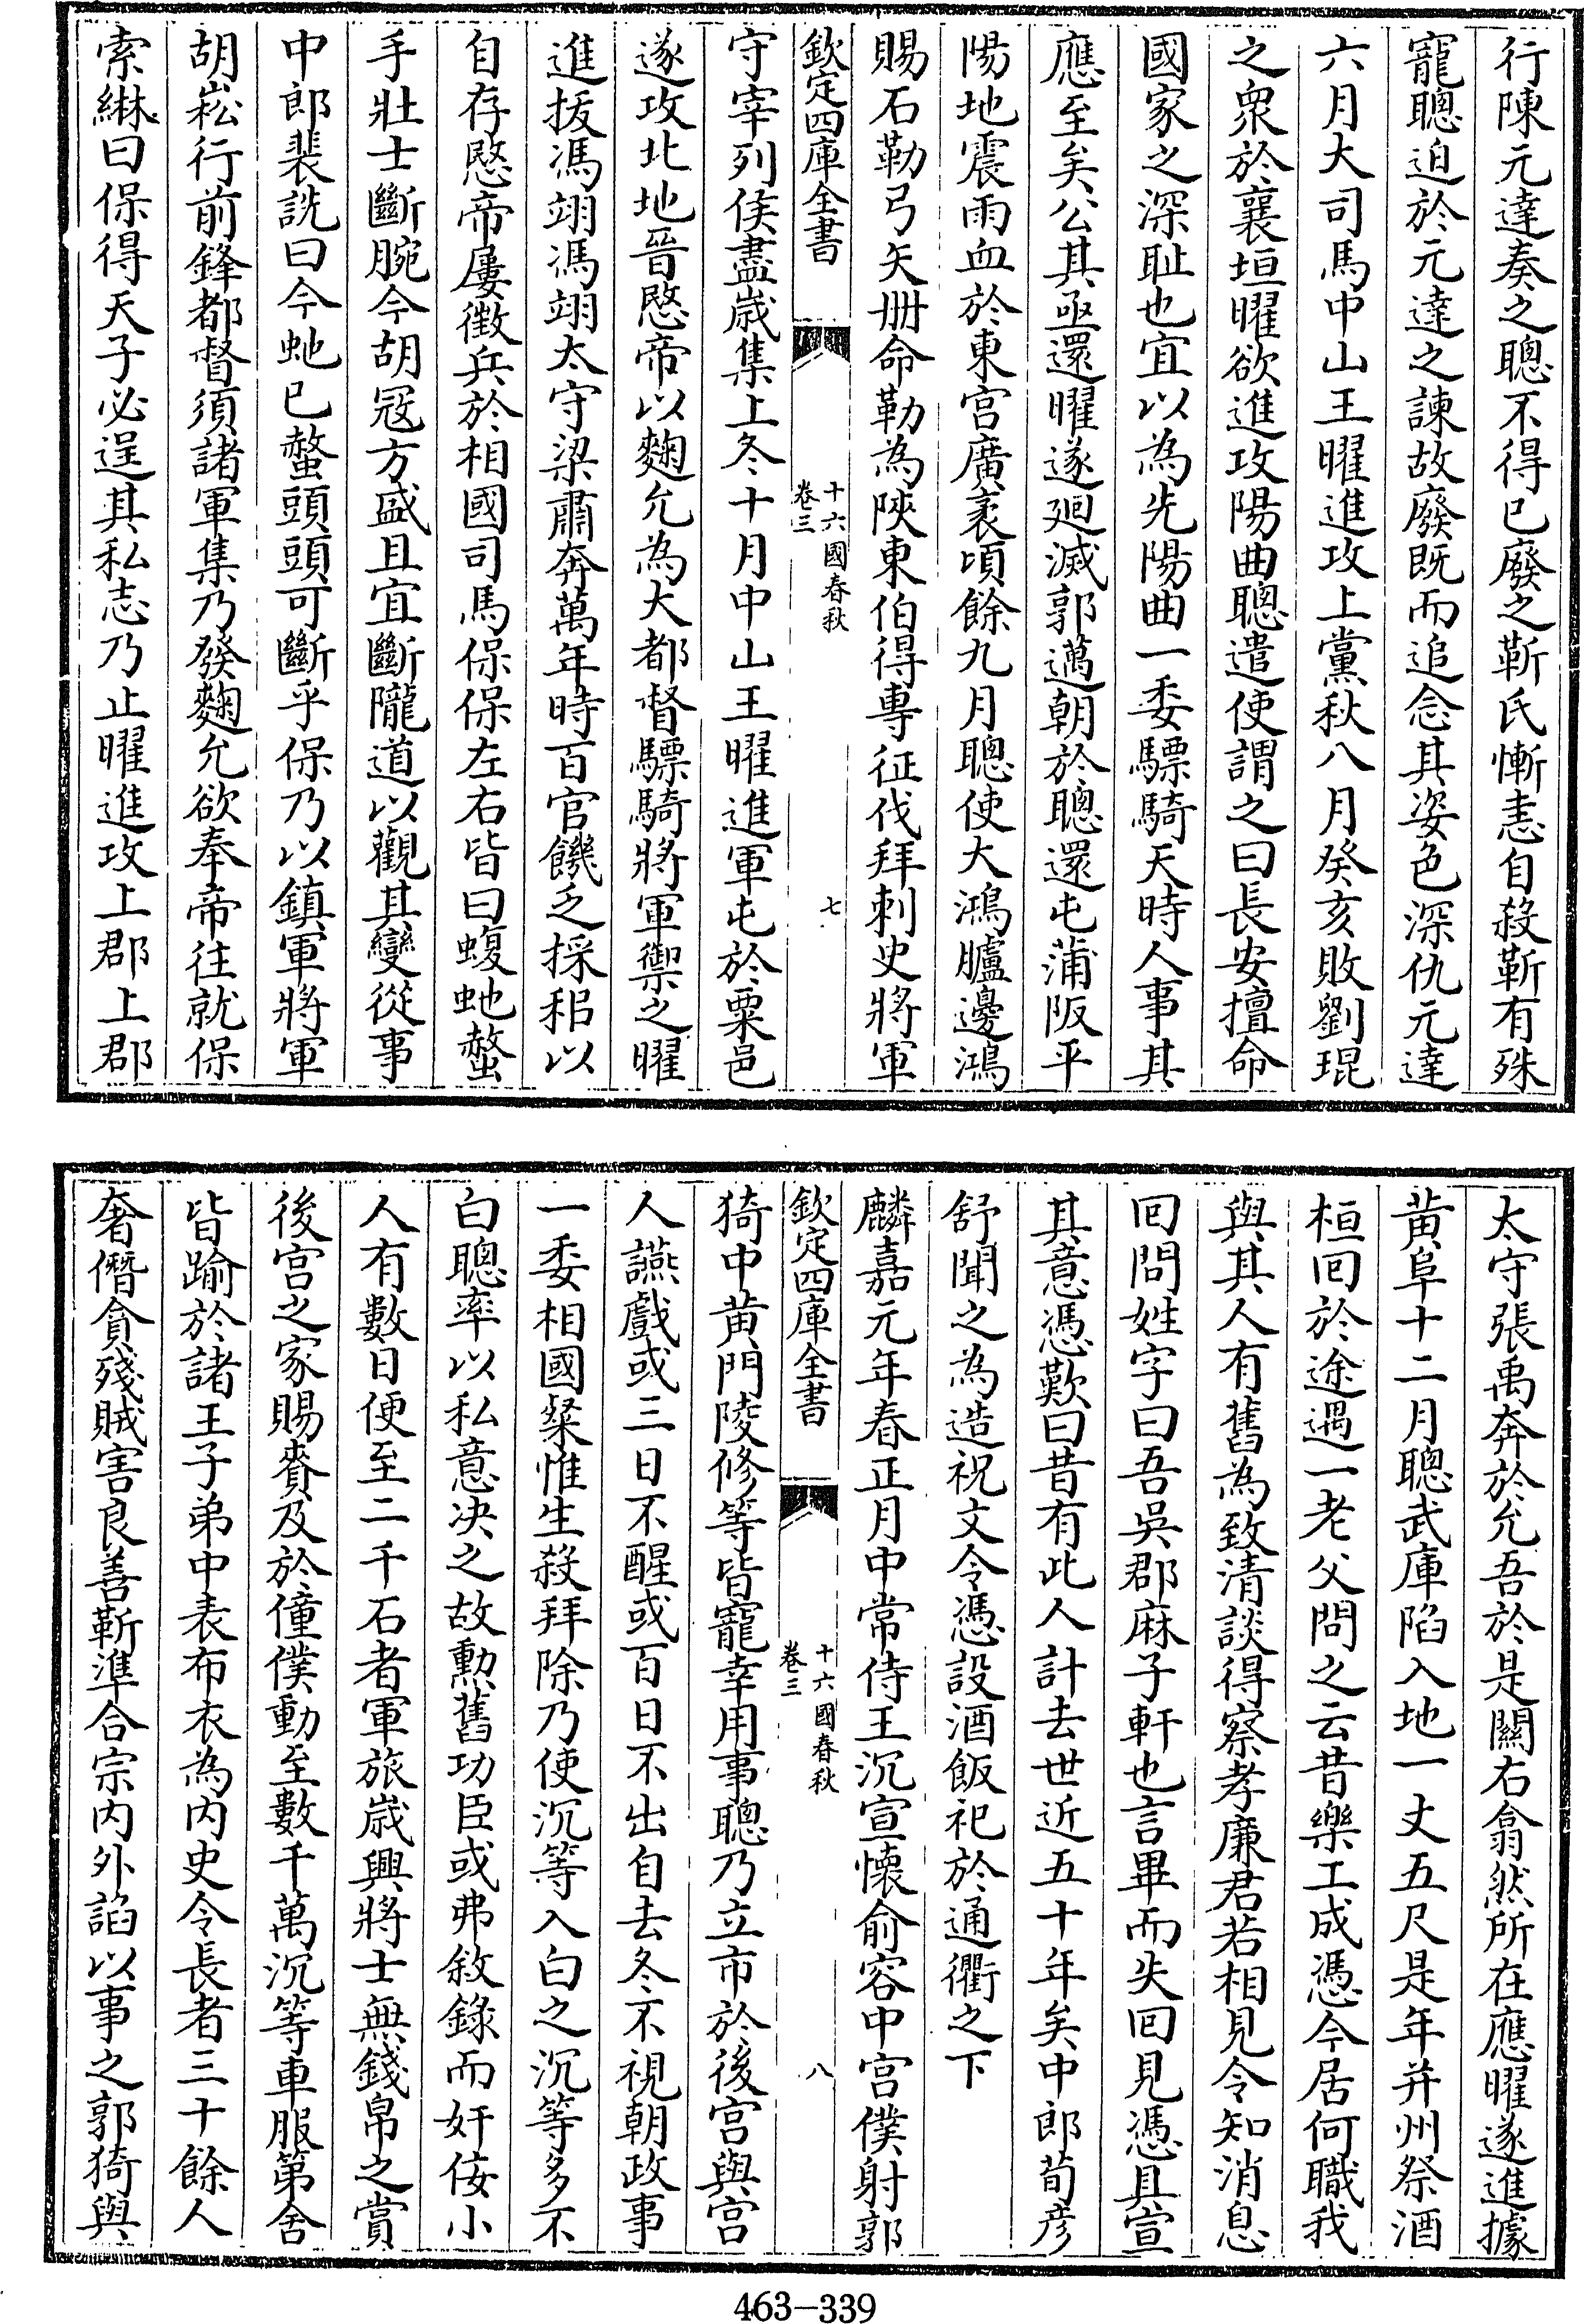 行陳元達奏之聰不得已廢之靳氏慚恚自殺靳有殊
寵聰迫於元達之諫故廢既而追念其姿色深仇元達
六月大司馬中山王曜進攻上黨秋八月癸亥敗劉琨
之衆於襄垣曜欲進攻陽曲聰遣使謂之曰長安擅命
國家之深恥也宜以為先陽曲一委驃騎天時人事其
應至矣公其亟還曜遂廻滅郭邁朝於聰還屯蒲阪平
陽地震雨血於東宫廣袤頃餘九月聰使大鴻臚邊鴻
賜石勒弓矢册命勒為陜東伯得專征伐拜刺史將軍
欽定四庫全書
十六國春秋
卷三
七
守宰列侯盡歳集上冬十月中山王曜進軍屯於粟邑
遂攻北地晉愍帝以麴允為大都督驃騎將軍禦之曜
進拔馮翊馮翊太守梁肅奔萬年時百官饑乏採稆以
自存愍帝屢徵兵於相國司馬保保左右皆曰蝮虵螫
手壯士斷腕今胡冦方盛且宜斷隴道以觀其變從事
中郎裴詵曰今虵已螫頭頭可斷乎保乃以鎮軍將軍
胡崧行前鋒都督須諸軍集乃發麴允欲奉帝往就保
索綝曰保得天子必逞其私志乃止曜進攻上郡上郡
太守張禹奔於允吾於是關右翕然所在應曜遂進據
黄阜十二月聰武庫陷入地一丈五尺是年并州祭酒
桓囘於途遇一老父問之云昔樂工成憑今居何職我
與其人有舊為致清談得察孝廉君若相見令知消息
囘問姓字曰吾吳郡麻子軒也言畢而失囘見憑具宣
其意憑歎曰昔有此人計去世近五十年矣中郎荀彦
舒聞之為造祝文令憑設酒飯祀於通衢之下
麟嘉元年春正月中常侍王沉宣懷俞容中宫僕射郭
欽定四庫全書
十六國春秋
卷三
八
猗中黄門陵修等皆寵幸用事聰乃立市於後宫與宫
人讌戲或三日不醒或百日不出自去冬不視朝政事
一委相國粲惟生殺拜除乃使沉等入白之沉等多不
白聰率以私意决之故勲舊功臣或弗敘錄而奸佞小
人有數日便至二千石者軍旅歳興將士無錢帛之賞
後宫之家賜賚及於僮僕動至數千萬沉等車服第舍
皆踰於諸王子弟中表布衣為内史令長者三十餘人
奢僭貪殘賊害良善靳準合宗内外諂以事之郭猗與
463-339